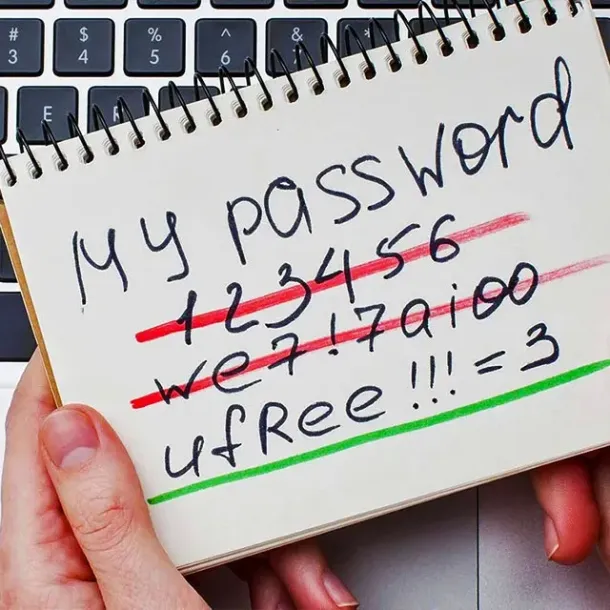 # $ % ^ & *
3 4 5 6 7
E R
My password
123456
we7!7aioo
ufRee!!!=3